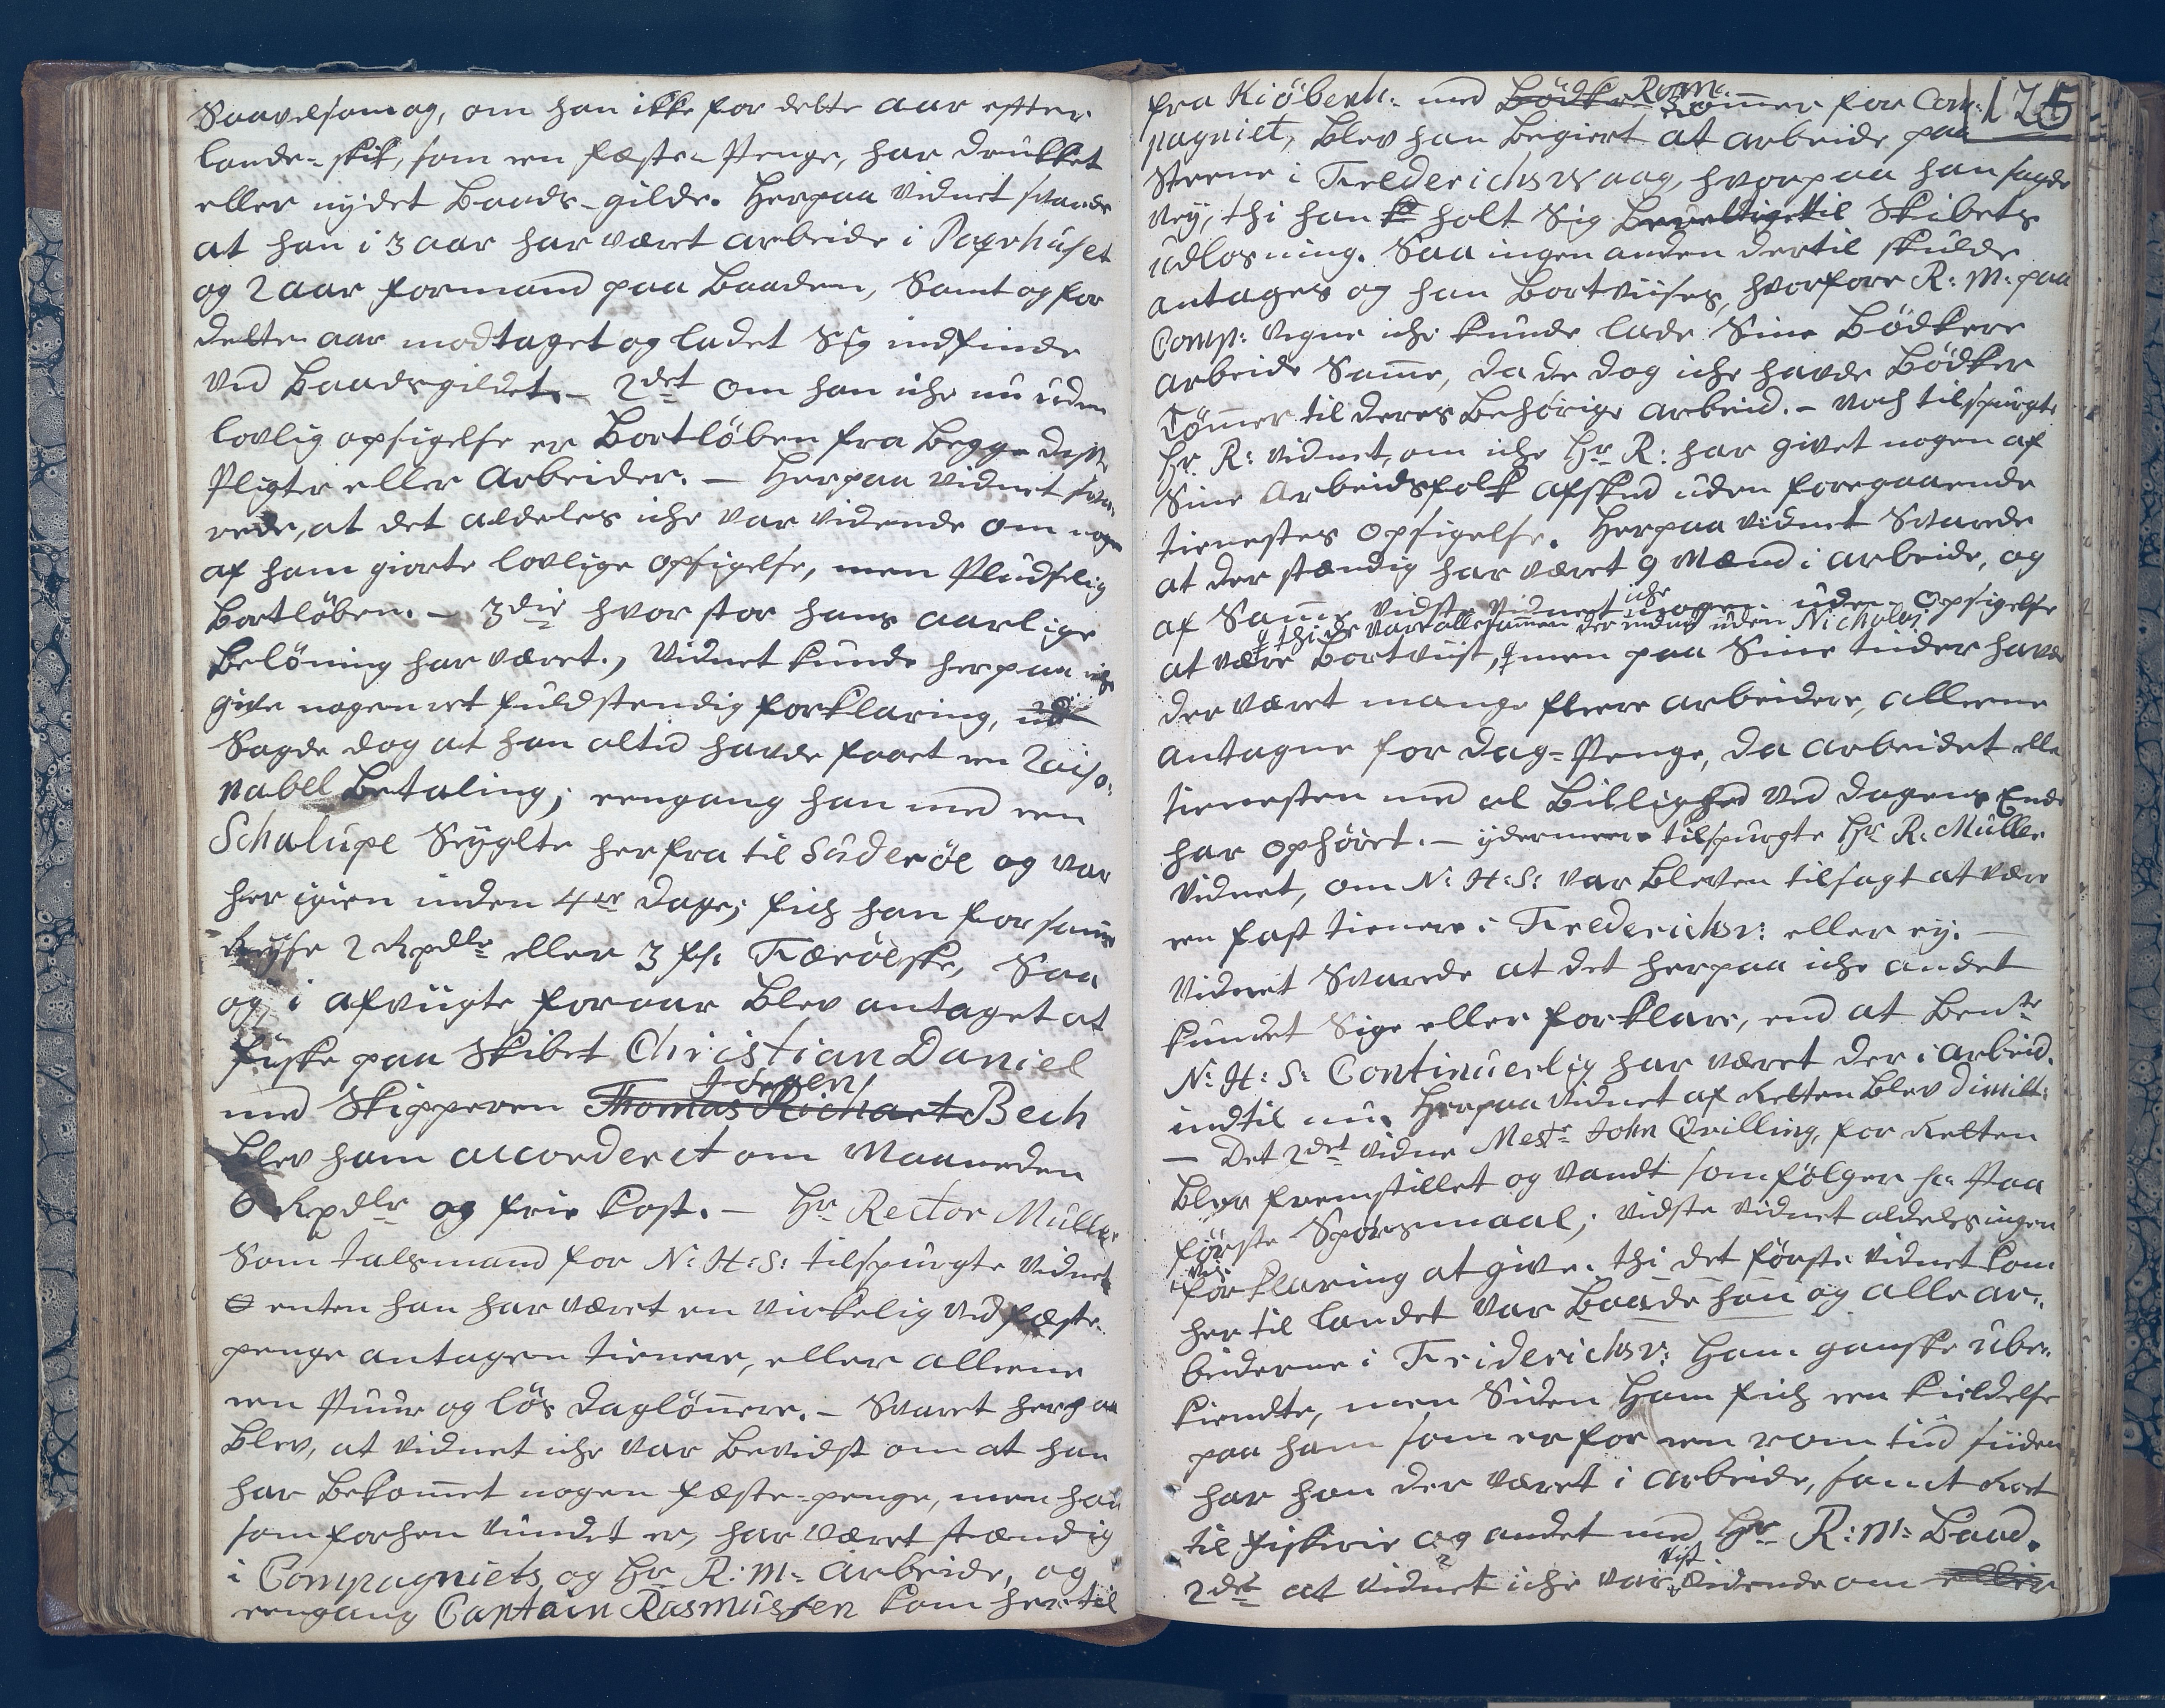 Saavelsom og, om han ikke for dette aar efter
lands-skik, som en fæste-Penge, har drukket
eller nydet Baads-gilde. Herpaa Vidnet svarede
at han i 3 aar har været arbeide i Pagehuset
og 2 aar formand paa Baaden, Samt og for
dette aar modtaget og ladet Sig indfinde
ved Baadsgildet. - 2det om han iche nu uden
lovlig opsigelse er Bortlöben fra begge disse
Pligter eller Arbeider. - Herpaa Vidnet sva-
rede, at det aldeles iche var vidende om nogen
af ham giorte lovlige opsigelse, men Pludselig
Bortlöben. - 3die hvor stor hans aarlige
Belöning har været., Vidnet kunde herpaa iche
give nogen ret fuldstendig forklaring, ud
Sagde dog at han altid havde faaet en Raiso-
nabel Betaling; eengang han med een
Schalupe Seyglte herfra til Suderöe og var
her igien inden 4re dage; fich han for samme
Reyse 2 Rpdlr eller 3 ps: Færöeske, Saa
og i afvigte foraar Blev antaget at
fiske paa Skibet Christian Daniel
Jörgen
med Skipperen Thomas Richart Bech
Blev ham accorderet om Maaneden
6 Rpdlr og frie kost. - Hr Rector Muller
Som talsmand for N: H: S: tilspurgte Vidnet
enten han har været en virkelig ved fæste-
penge antagen tienere, eller alleene
een Puur og lös daglönnere. - Svaret herpaa
Blev, at Vidnet iche var Bevidst om at han
har Bekommet nogen fæste-penge, men han
som forhen vundet er, har været stændig
i Compagniets og Hr R: M: Arbeide, og
eengang Captain Rasmussen kom her til
175
Rom.
fra Kiöbenh: med Bödker Tömmer for Com-
pagniet, Blev han Begiert at arbeide paa
Steene i Frederichsvaag, hvorpaa han sagde
Ney, thi han holt Sig Berettiget til Skibets
udlosning. Saa ingen anden dertil skulde
antages og han Bortviises, hvorfore R: M: paa
Comp: Vegne iche kunde lade Sine Bödkere
arbeide Samme, da de dog iche havde Bödker
Tömmer til deres Behörige arbeid. - Noch tilspurgte
Hr. R: Vidnet, om iche Hr R: har givet nogen af
Sine Arbeidsfolk afskeed uden foregaaende
tienestes opsigelse. Herpaa Vidnet Svarede
at der stændig har været 9 Mænd i arbeide, og
iche
af Samme Vidste Vidnet nogen uden Opsigelse
# thi de vare allesammen der endnu uden Nicholai
at være Bortviist, # men paa Sine tider havde
der været mange fleere arbeidere, alleene
antagne for Dag-Penge, da arbeidet eller
tienesten med al Billighed ved dagens Ende
har ophöret. - ydermeere tilspurgte Hr R. Muller
Vidnet, om N: H: S: var Bleven tilsagt at være
een fast tienere i Frederichsv: eller ey. -
Vidnet Svarede at det herpaa iche andet
kundet Sige eller forklare, end at Bente
N: H: S: Continuerlig har været der i arbeid.
indtil nu. Herpaa Vidnet af Retten Blev dimitt:
- Det 2det Vidne Mestr John Qvilling, for Retten
Blev fremstillet og Vandt som fölger s: Paa
förste Spörsmaal; Vidste Vidnet aldeles ingen
Vis.
forklaring at give. thi det förste Vidnet kom
her til landet var Baade han og alle ar-
beiderne i Friderichsv: Ham ganske ube-
kiendte, men Siden Ham fich een kieldelse
paa ham som er for een rom tiid siiden
har han der været i arbeide, samt Roet
til Fiskerie og andet med Hr R: M: Baad.
vist
2det at Vidnet iche var vidende om eller